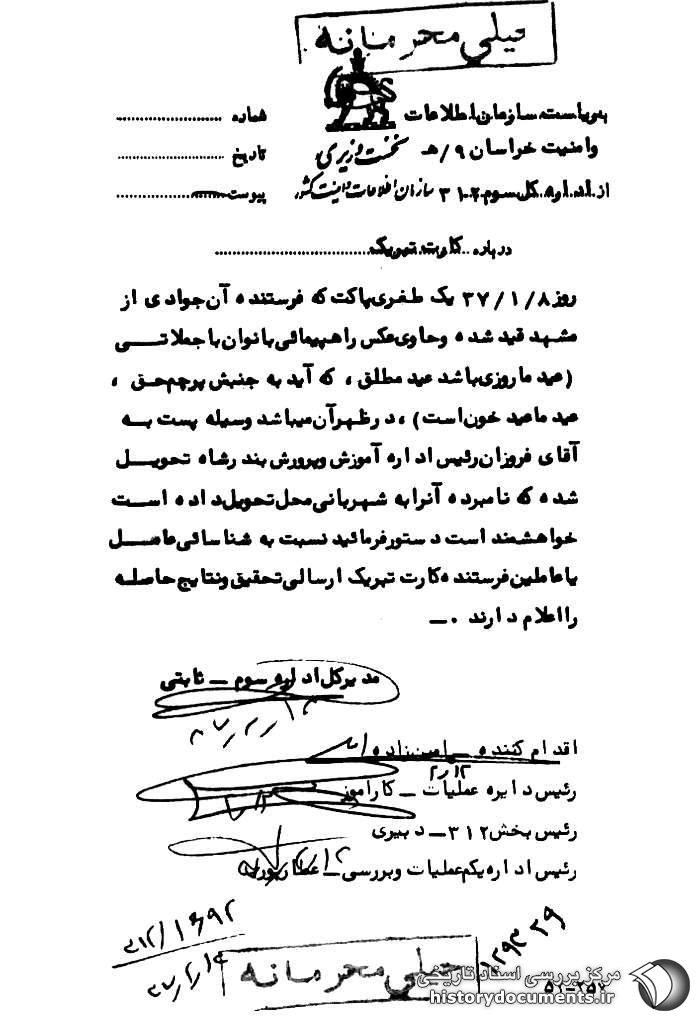 خیلی محرمانه
به ریاست سازمان اطلاعات
شماره
و امنیت خراسان ۹/ هـ
نخست وزیری
تاریخ
از اداره کل سوم ۳۱۲
سازمان اطلاعات و امنیت کشور
پیوست
درباره کارت تبریک
روز ۳۷/۱/۸ یک طغری پاکت که فرستنده آن جوادی از
مشهد قید شده و حاوی عکس راهپیمائی بانوان با جملاتی
(عید ما روزی باشد عید مطلق ، که آید به جنبش پرچم حق ،
عید ما عید خون است) ، در ظهر آن میباشد وسیله پست به
آقای فروزان رئیس اداره آموزش و پرورش بندرشاه تحویل
شده که نامبرده آنرا به شهربانی محل تحویل داده است
خواهشمند است دستور فرمائید نسبت به شناسائی عامل
یا عاملین فرستنده کارت تبریک ارسالی تحقیق و نتایج حاصله
را اعلام دارند . ـ
مدیرکل اداره سوم ـ ثابتی
اقدام کننده ـ امین زاده
رئیس دایره عملیات ـ کارآموز
رئیس بخش ۳۱۲ ـ دبیری
رئیس اداره یکم عملیات و بررسی ـ عطارپور
خیلی محرمانه
مرکز بررسی اسناد تاریخی
historydocuments.ir